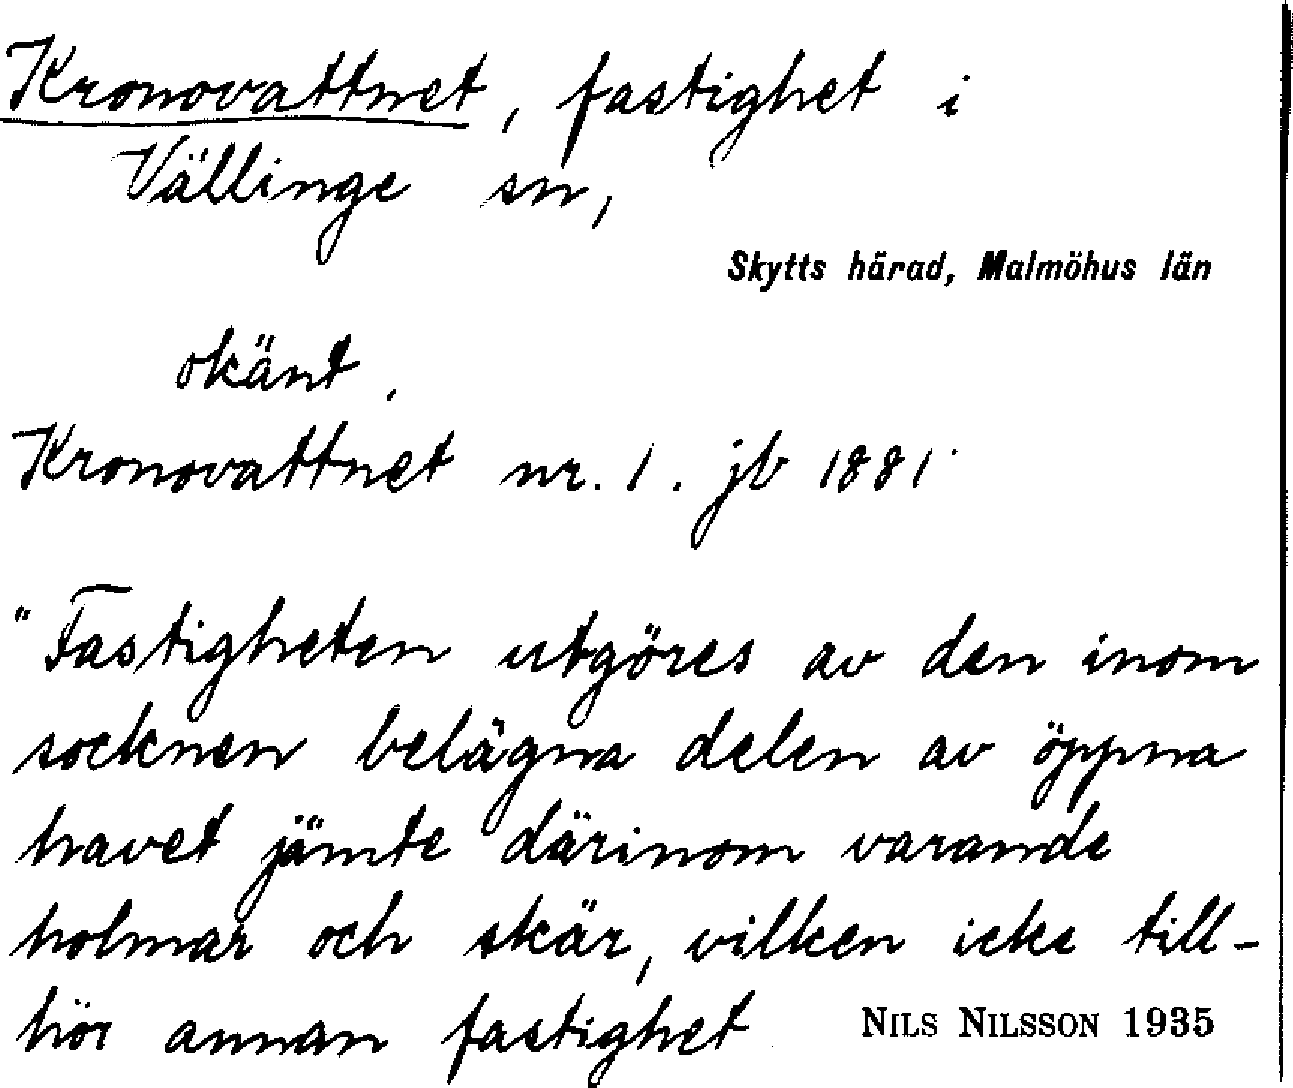 Kronovattnet, fastighet i
Vällinge sn,
Skytts härad, Malmöhus län
okänt.
Kronovattnet nr. 1. jb 1881
"Fastigheten utgöres av den inom
socknen belägna delen av öppna
havet jämte därinom varande
holmar och skär, vilken icke till-
hör annan fastighet
NILS NILSSON 1935